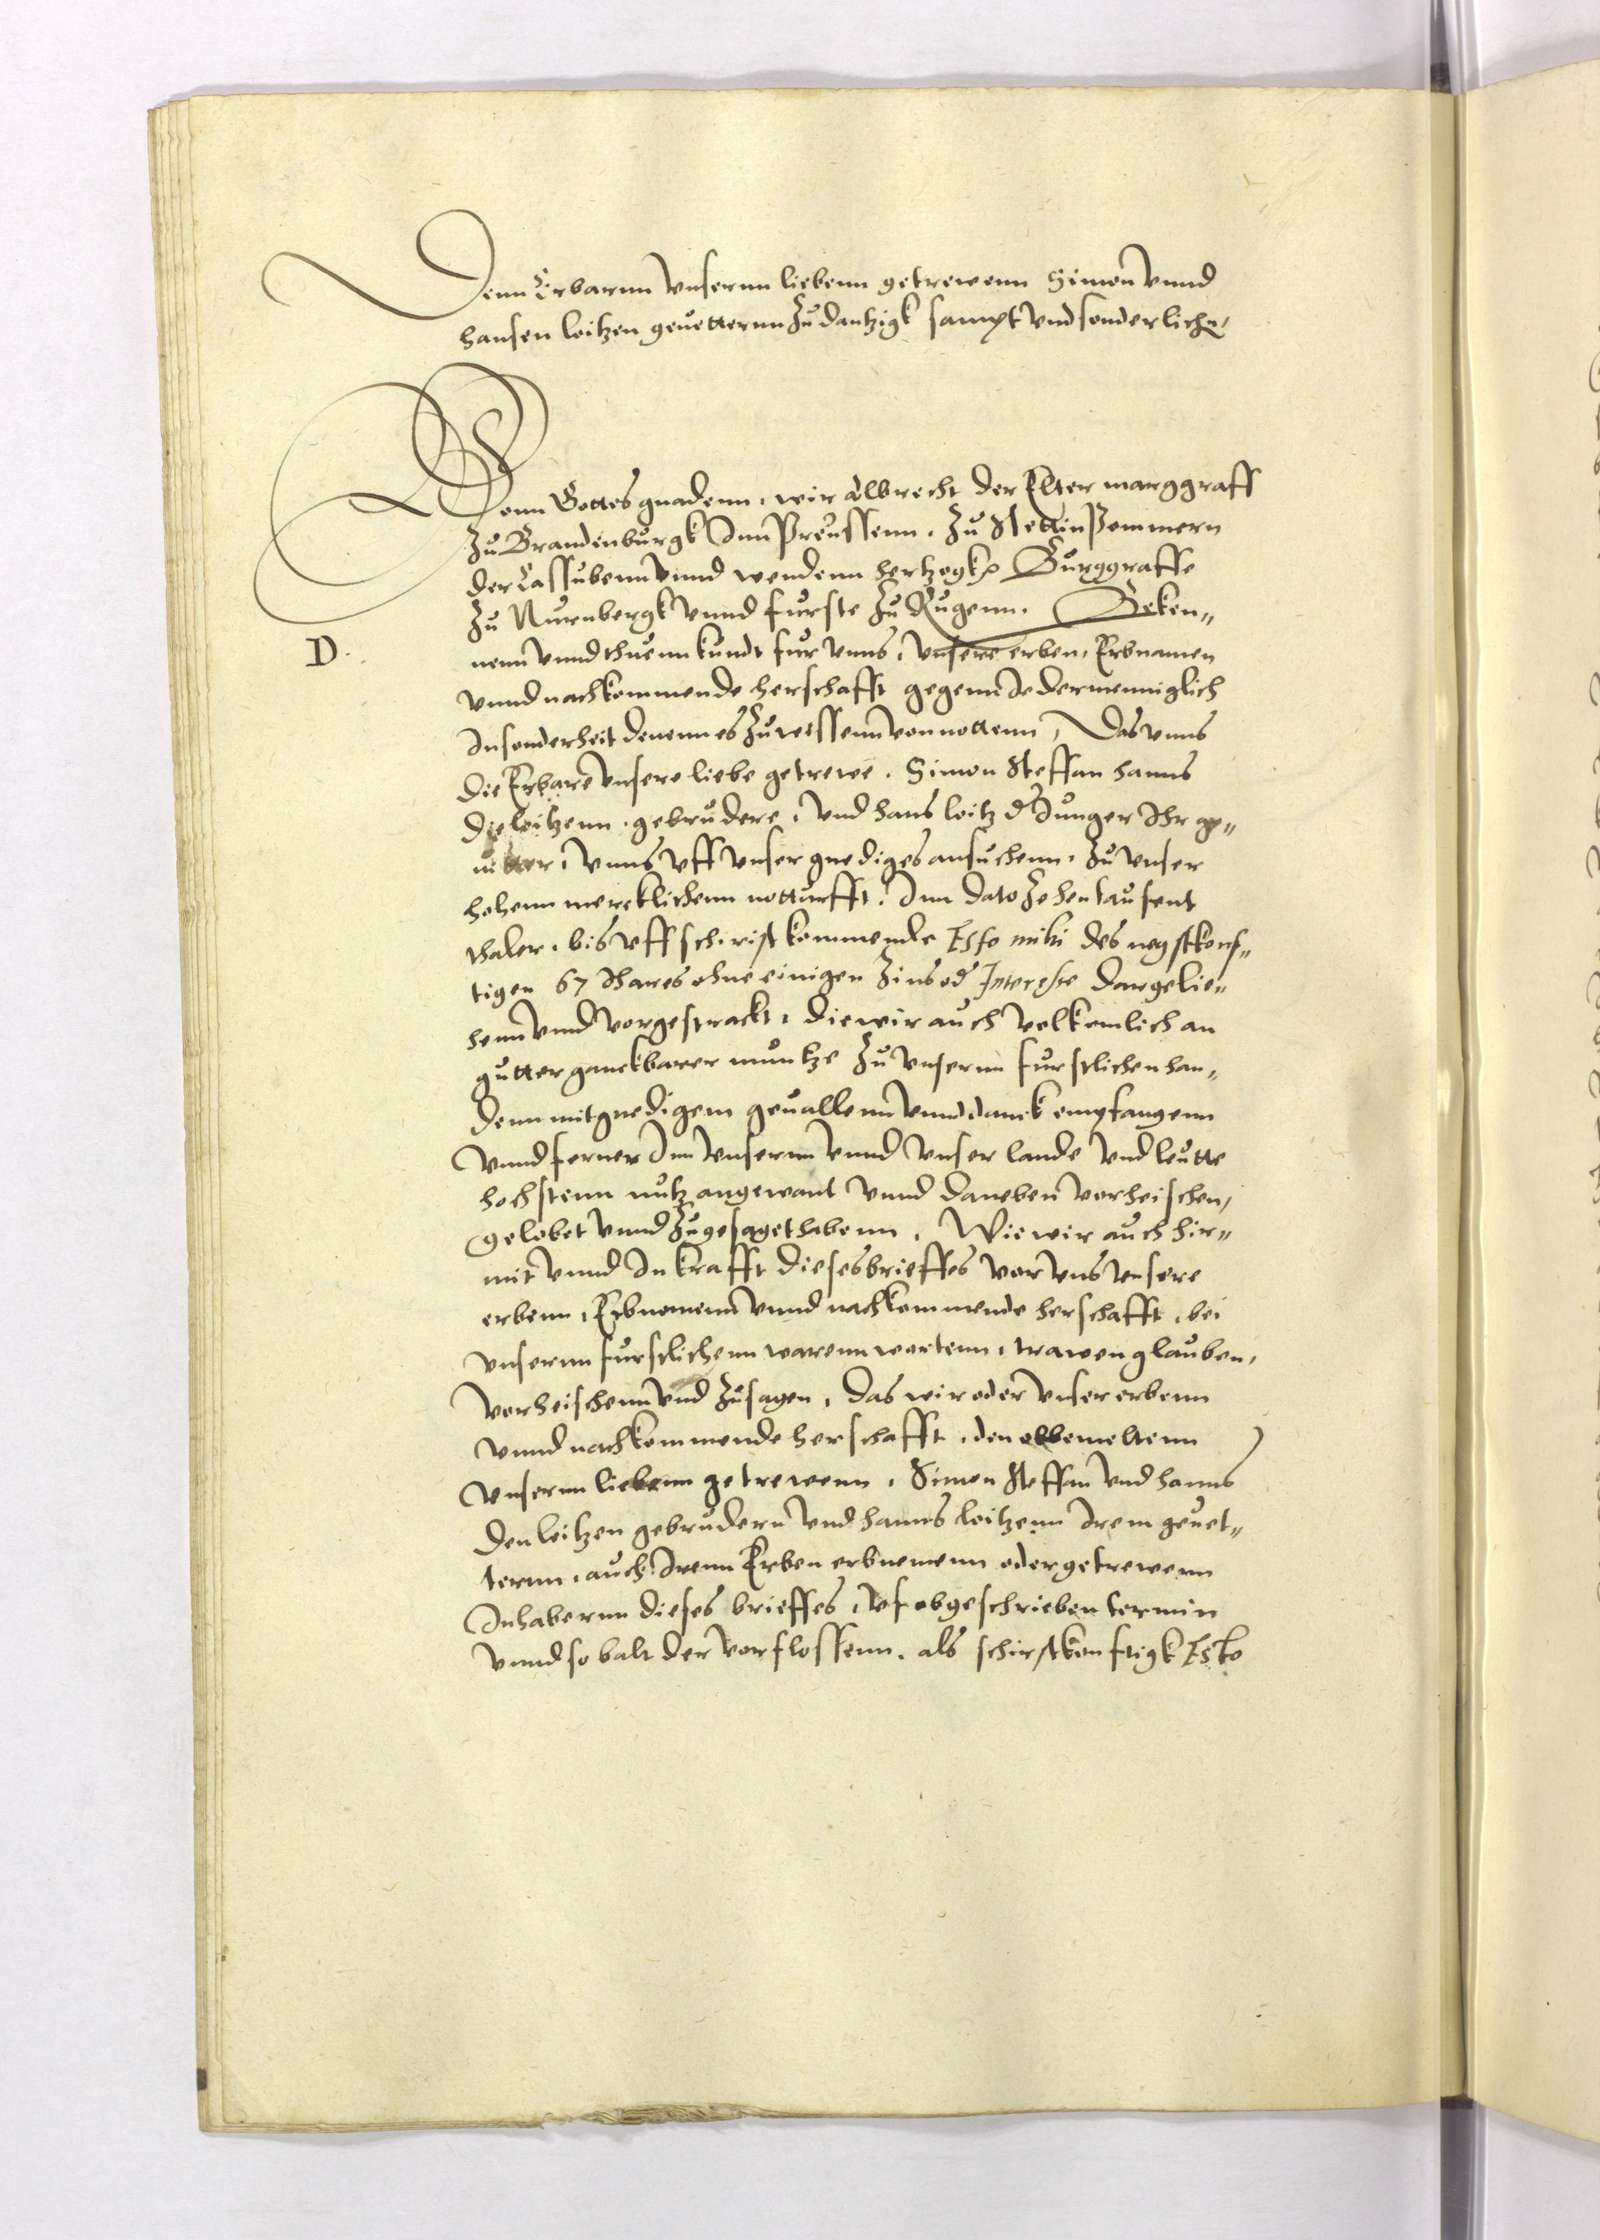 Denn Erbarnn vnsernn liebenn getrewenn Simon vnnd
hansen loitzen geuetternn zu dantzigk sampt vnd sonderlichn
Vonn Gottes gnadenn, wir Albrecht der Elter marggraff
zu Brandenburgk Inn Preussenn, zu Stettin Pommern
der Cassubenn vnnd wendenn hertzogk Burggraffe
zu Nurnbergk vnnd furste zu Rugenn. Beken„
D.
nenn vnnd thuenn kundt fur vnns, vnsere erben, Erbnamen
vnnd nachkommende herschafft gegenn Jedermenniglich
Insonderheit denenn es zu wissenn von nottenn, Das vnns
die Erbare vnsere liebe getrewe, Simon Steffan hanns
die loitzenn, gebrudere, vnd hans loitz d Junger Ihr ge„
uetter, vnns vff vnser gnediges ansuchenn, zu vnser
hohenn mercklichenn notturfft, Inn dato zehentausent
thaler, bis vff schirist kommende Esto mihi des negstkonf„
tigen 67 Ihares ohne einigen zins od Interesse dargelie„
henn vnnd vorgestrackt, die wir auch volkomlich an
gutter ganckbarer muntze zu vnsernn furstlichen han„
denn mit gnedigem geuallenn vnnd danck empfangenn
vnnd ferner Inn vnsernn vnnd vnser lande vnd leutte
hochstenn nutz angewant vnnd daneben vorheischen,
gelobet vnnd zugesaget habenn. Wie wir auch hir„
mit vnnd In krafft dieses brieffes vor vns vnsere
erbenn, Erbnemenn vnnd nachkommende herschafft, bei
vnsernn furstlichenn warenn wortenn, trawen glauben,
vorheischenn vnd zusagen, das wir oder vnser erbenn
vnnd nachkommende herschafft, den obbemeltenn
vnsernn liebenn getrewenn, Simon Steffan vnd hanns
den loitzen gebrudern vnd hanns loitzenn Irem geuet„
ternn, auch Irenn Erben erbnemenn oder getrewenn
Inhabernn dieses brieffes, vf obgeschrieben termin
vnnd so balt der vorflossenn, als schirstkonftigk Esto